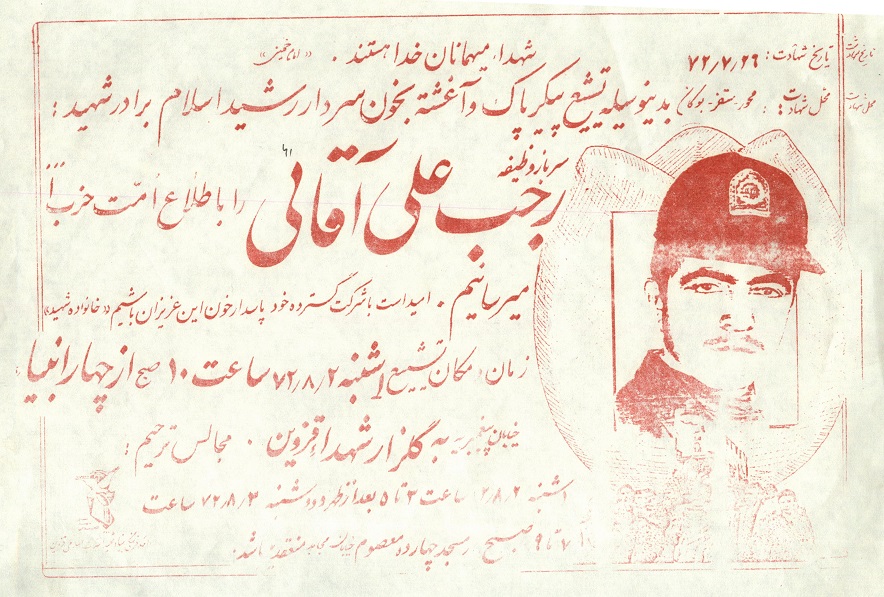 شهداء میهمانان خدا هستند . «امام خمینی»
تاریخ شهادت : ۷۲٫۷٫۲۹
محل شهادت : محور - سقز - بوکان
بدینوسیله تشییع پیکر پاک و آغشته بخون سردار رشید اسلام برادر شهید :
سرباز وظیفه
۶۱
رجب علی آقائی
را باطلاع اُمّت حزب ا...
میرسانیم . امید است با شرکت گسترده خود پاسدار خون این عزیزان باشیم «خانواده شهید»
زمان و مکان تشییع ۱شنبه ۷۲٫۸٫۲ ساعت ۱۰ صبح از چهار انبیا
خیابان پیغمبریه به گلزار شهداء قزوین . مجالس ترحیم :
۱شنبه ۲٫۸٫۲ ساعت ۳ تا ۵ بعد از ظهر دوشنبه ۷۲٫۸٫۳ ساعت
۷ تا ۹ صبح مسجد چهارده معصوم خیابان منعقد باشد .